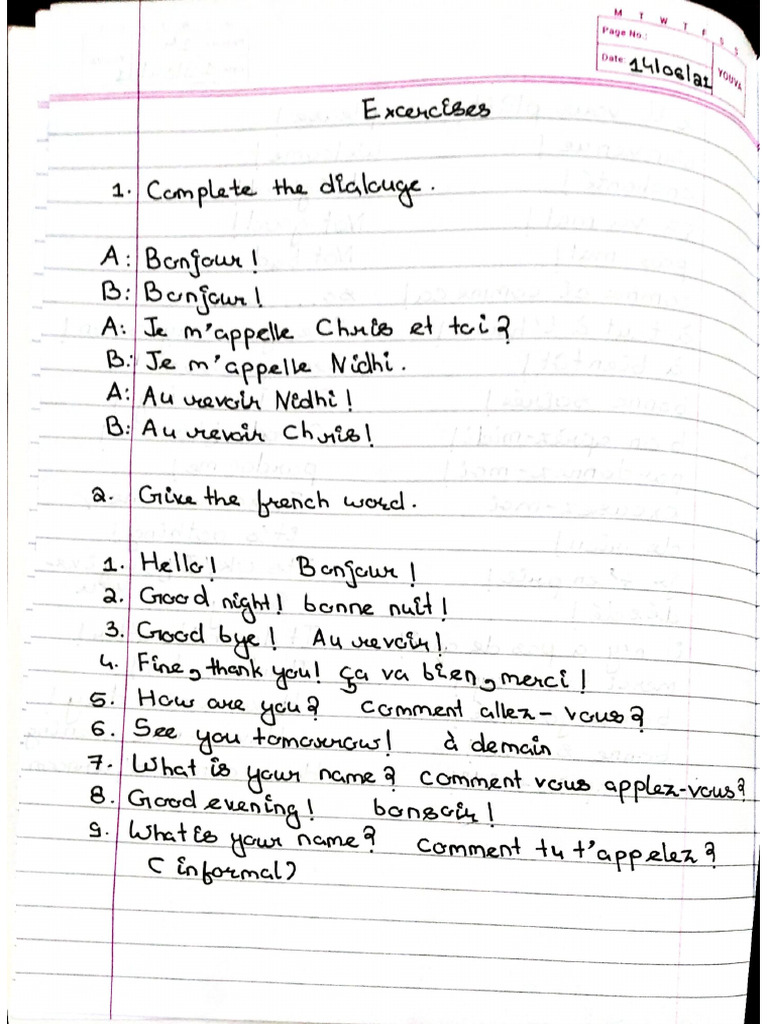 M T W T F S S
Page No.:
Date: 14/06/21
YOUVA
Excercises
1. Complete the dialouge.
A: Bonjour!
B: Bonjour!
A: Je m'appelle Chris et toi?
B: Je m'appelle Nidhi.
A: Au revoir Nidhi!
B: Au revoir Chris!
2. Give the french word.
1. Hello! Bonjour!
2. Good night! bonne nuit!
3. Good bye! Au revoir!
4. Fine, thank you! ça va bien, merci!
5. How are you? comment allez-vous?
6. See you tomorrow! à demain
7. What is your name? comment vous applez-vous?
8. Good evening! bonsoir!
9. What is your name? comment tu t'appelez?
(informal)